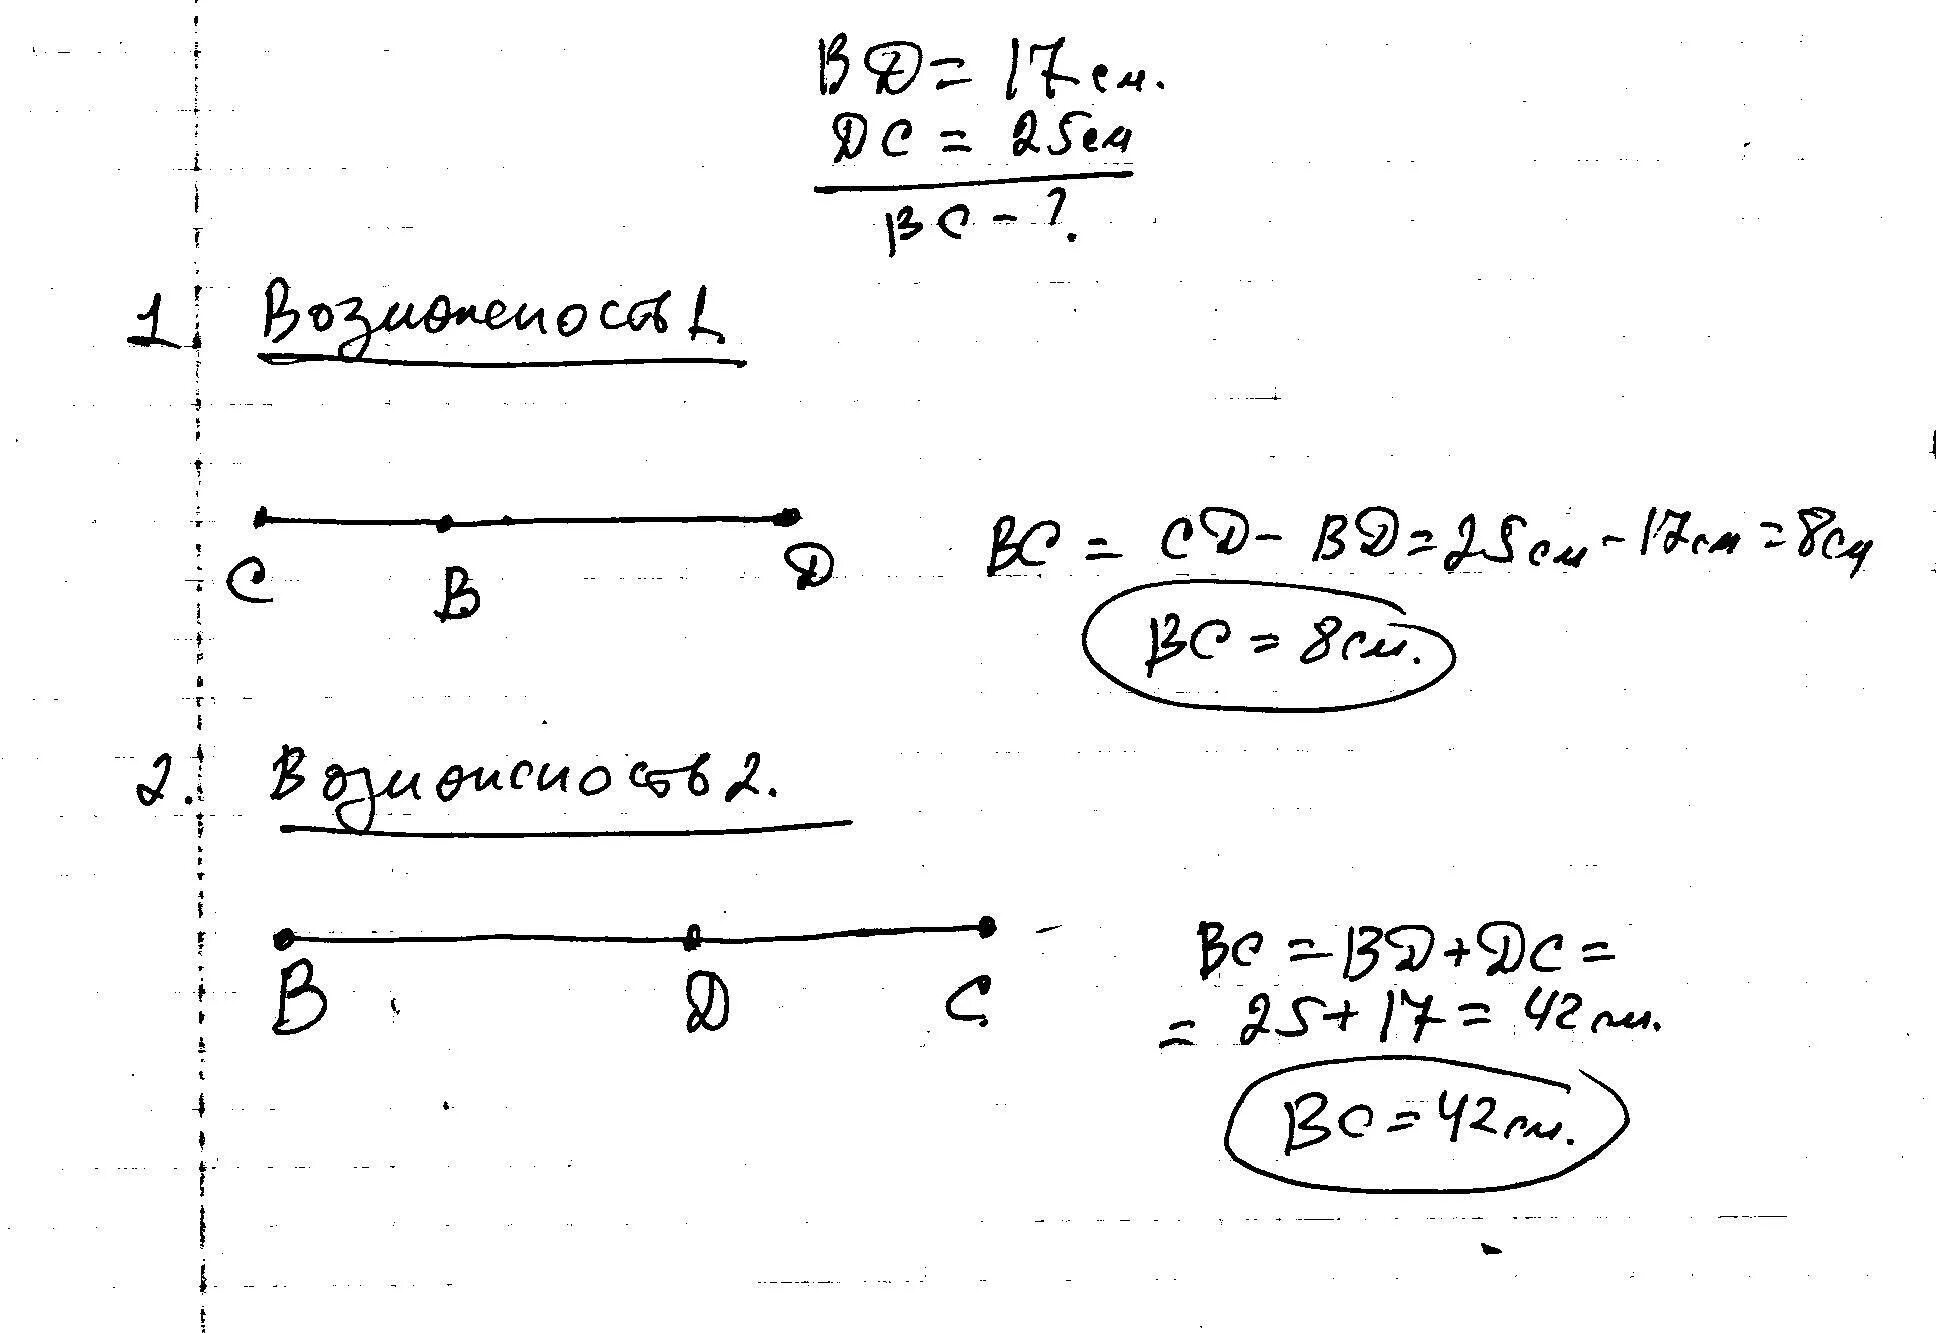 BD = 17 см.
DC = 25 см
BC - ?
1. Возможность 1.
C B D
BC = CD - BD = 25 см - 17 см = 8 см
BC = 8 см.
2. Возможность 2.
B D C
BC = BD + DC =
= 25 + 17 = 42 см.
BC = 42 см.